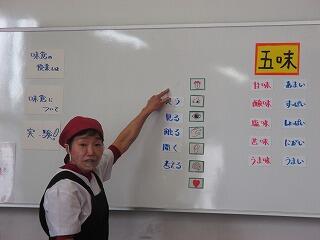 味覚の
授業とは
味覚に
ついて
実・験!!
う
見る
触る
聞く
考える
五味
甘味 あまい
酸味 すっぱい
塩味 しょっぱい
苦味 にがい
うま味 うまい